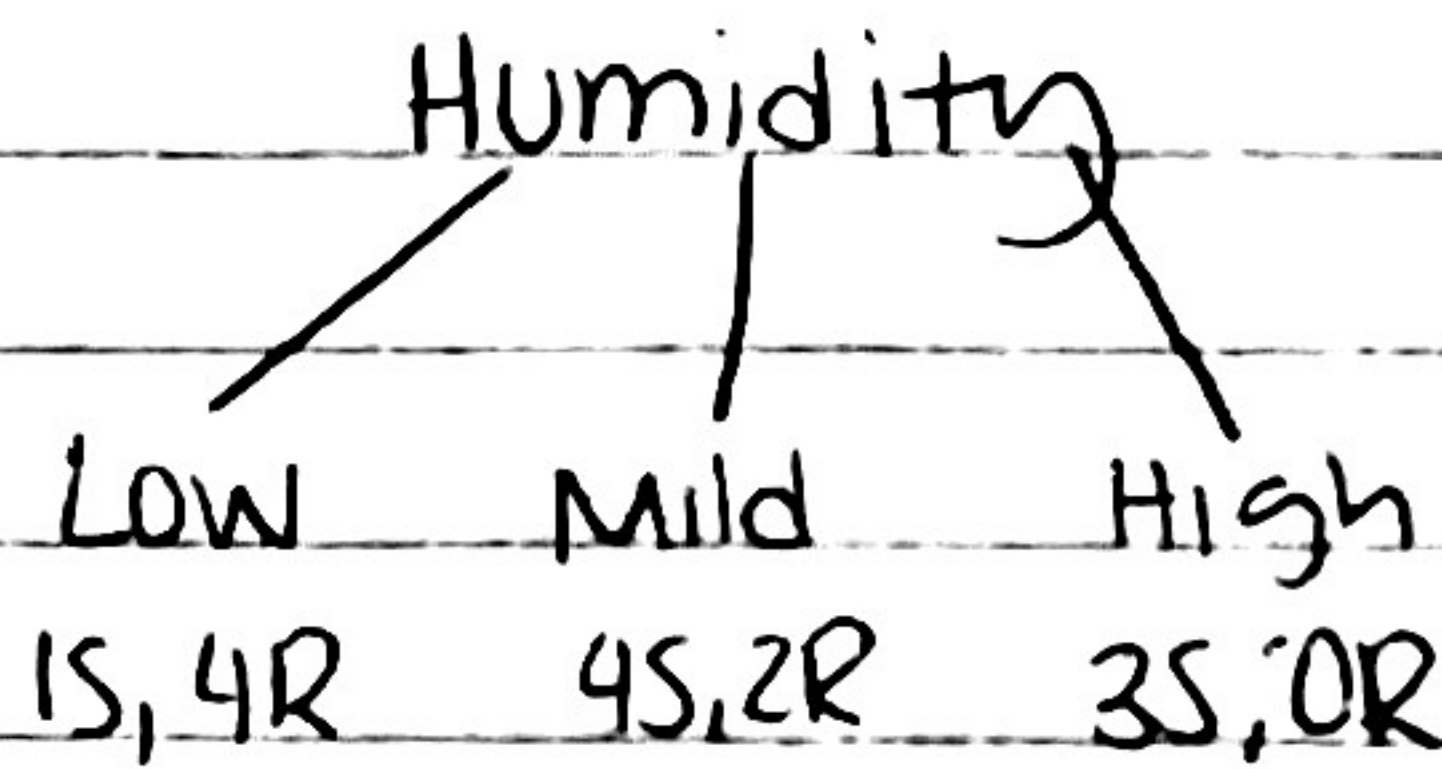 Humidity
Low Mild High
1S, 4R 4S, 2R 3S, 0R